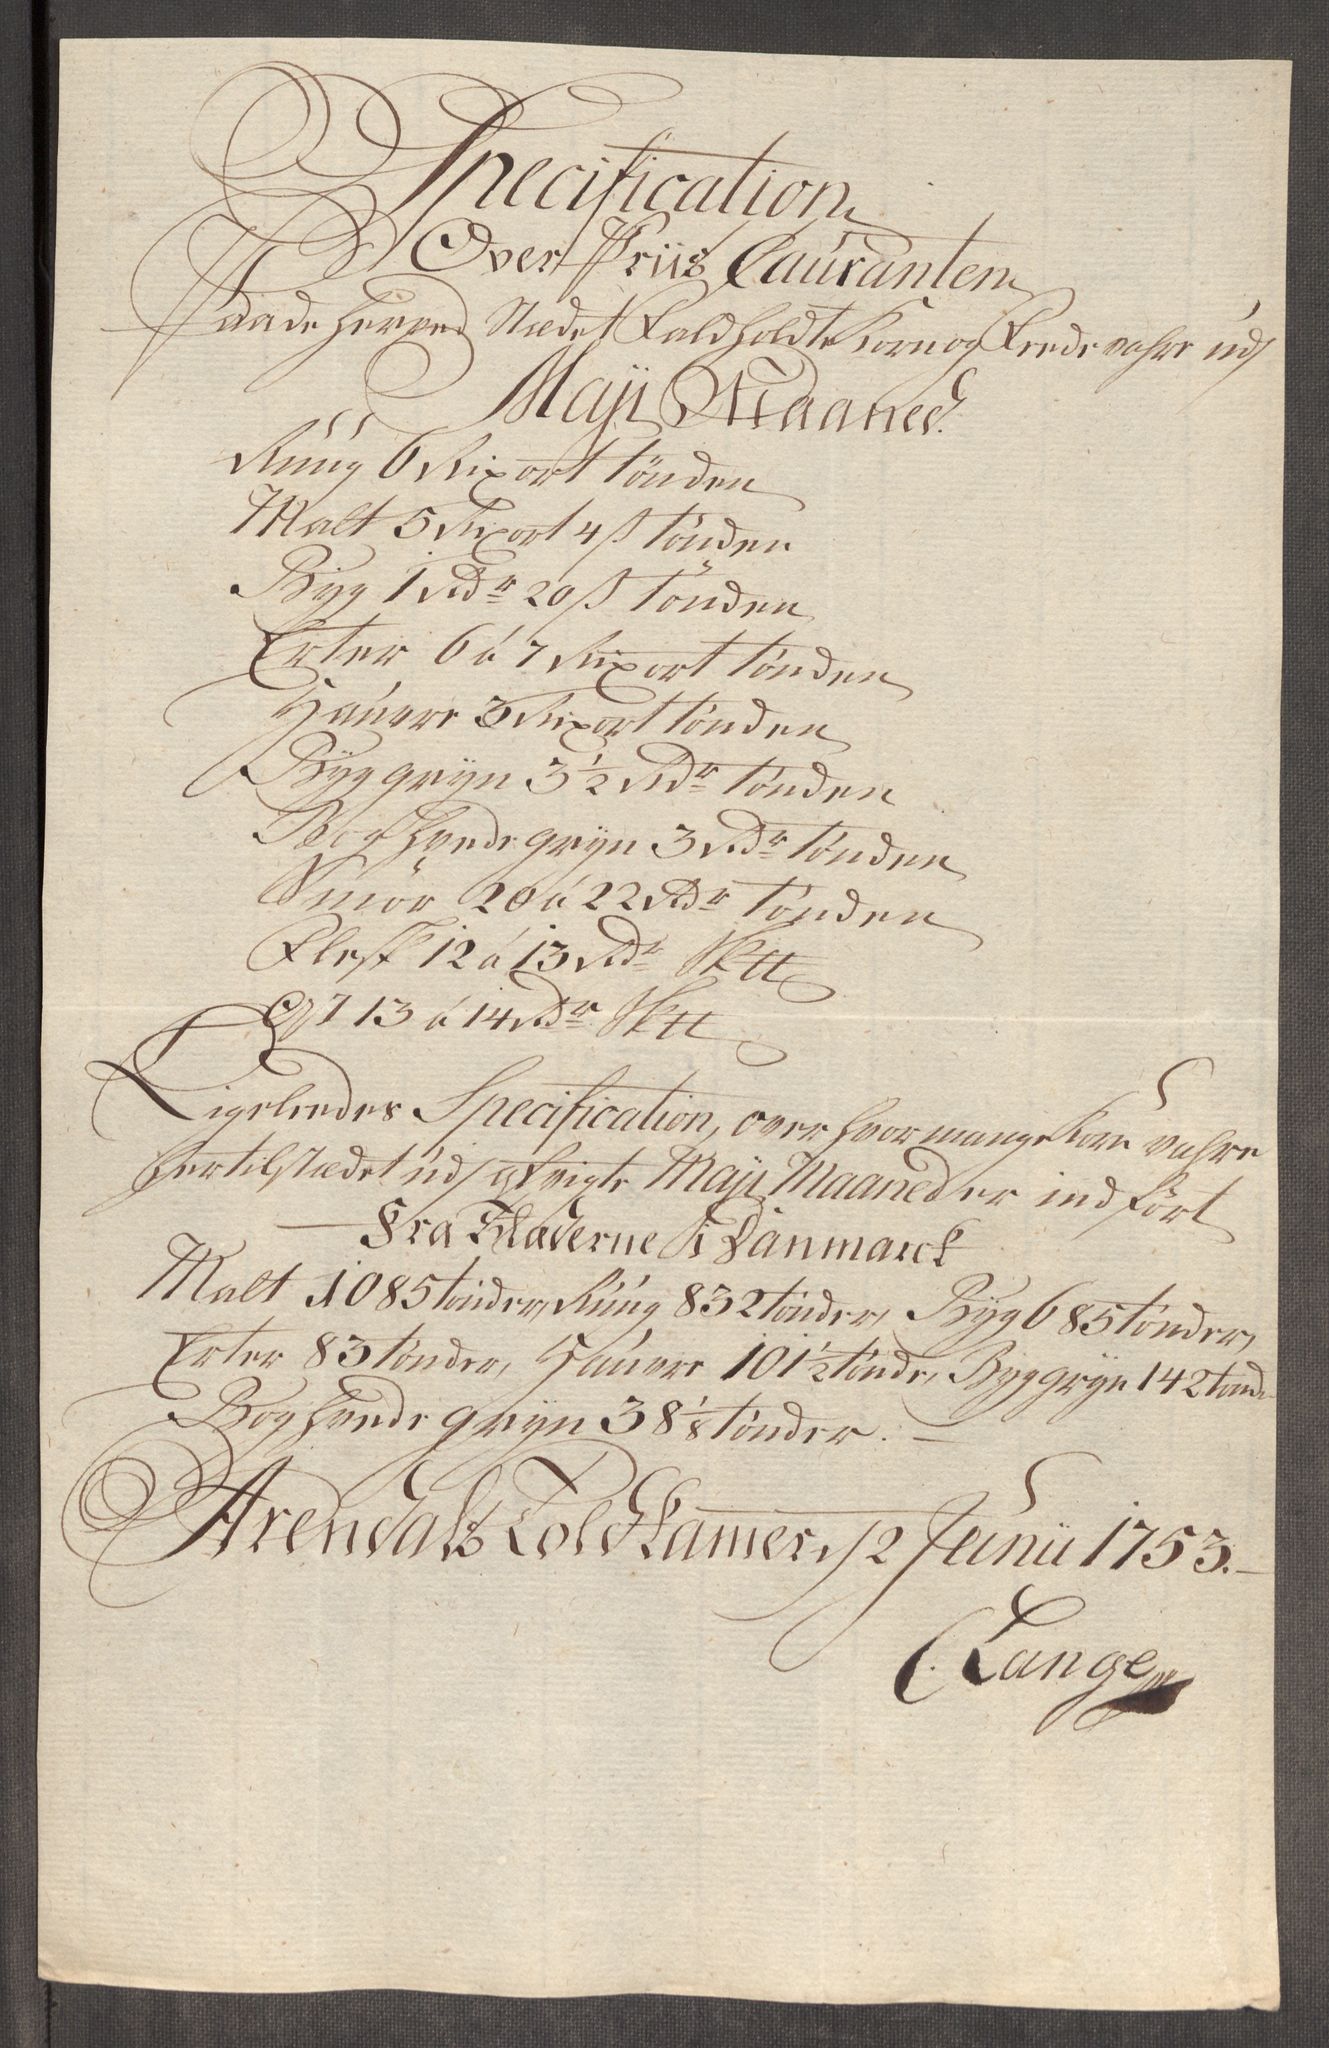 Specification
Over Priis Couranten
Paa de herved Stædet Fald holdte Korn og Fede vahre udj
Maji Maaned.
Rúúg 6 Rixort tönden
Malt 5 Rixort 4 ß tönden
Byg 1 Rdr 20 ß tönden
Erter 6 á 7 Rixort tönden
Haúere 3 Rixort tönden
Byg gryn 3 1/2 Rdr tönden
Boghvede gryn 3 Rdr tönden
Smör 20 á 22 Rdr tönden
Flesk 12 á 13 Rdr Sktt
Ost 13 á 14 Rdr Sktt
Ligeleedes Specification, over hvor mange Korn vahre
hertilstædet udj Maji Maaned er indfört
Fra Stæderne i Danmarck
Malt 1085 tönder, Rúúg 832 tönder, Byg 685 tönder,
Erter 83 tönder, Haúere 101 1/2 tönde, Byggryn 142 tønde
Boghvede gryn 38 1/8 tönder. —
Arendals Told Kamer, d 2 Junii 1753. —
C. Lange